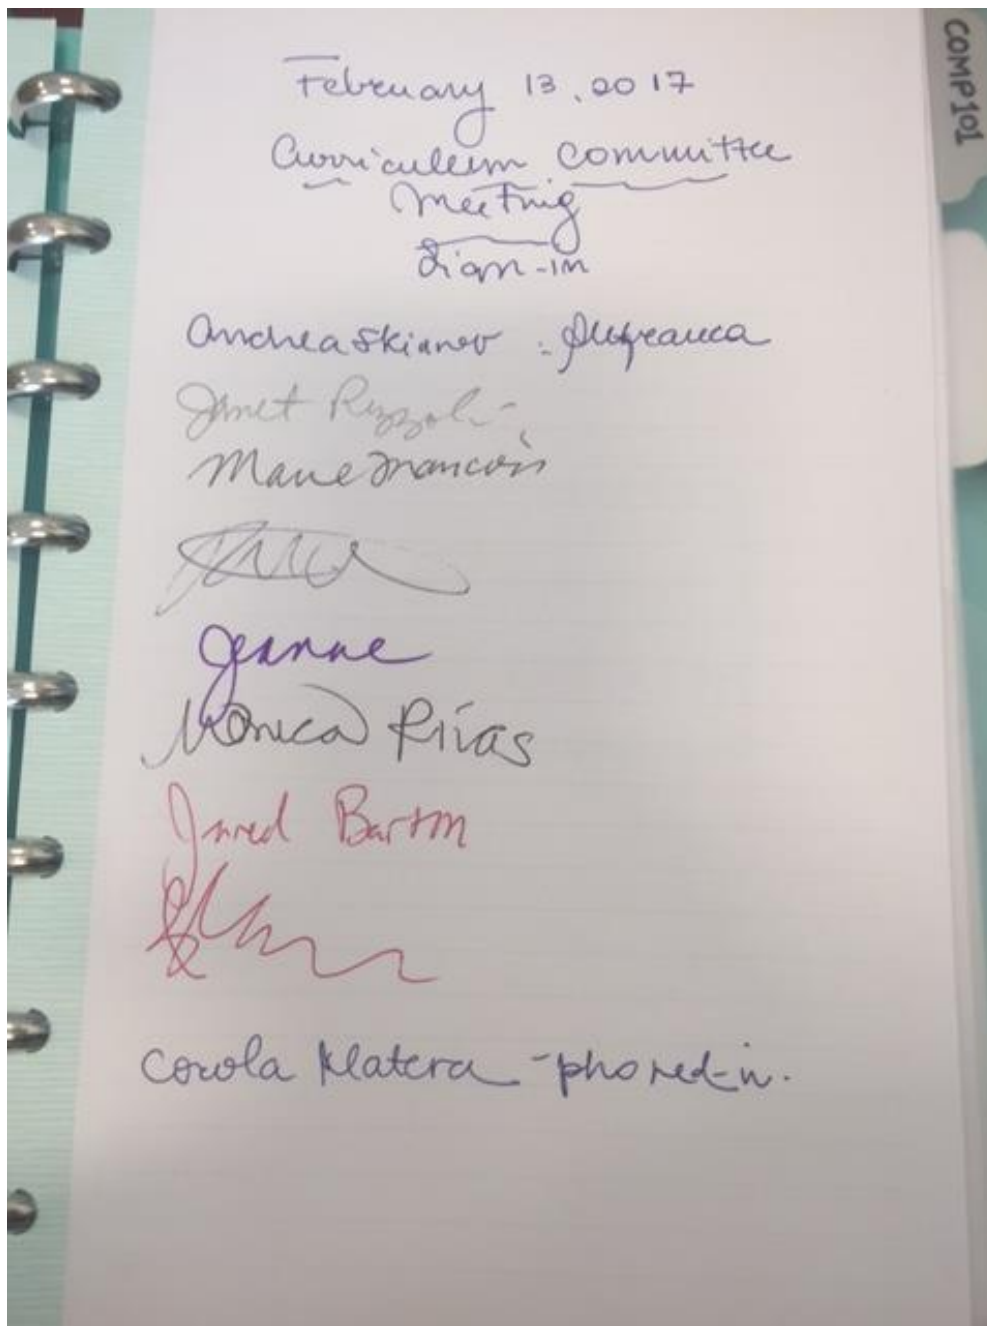 February 13, 2017
Curriculum Committee
Meeting
Sign-in
Andrea Skianov :
Janet Rizzoli
Marie Francois
Jeanne
Monica Rivas
Jared Barton
Corola Matera - phoned-in.
COMP101